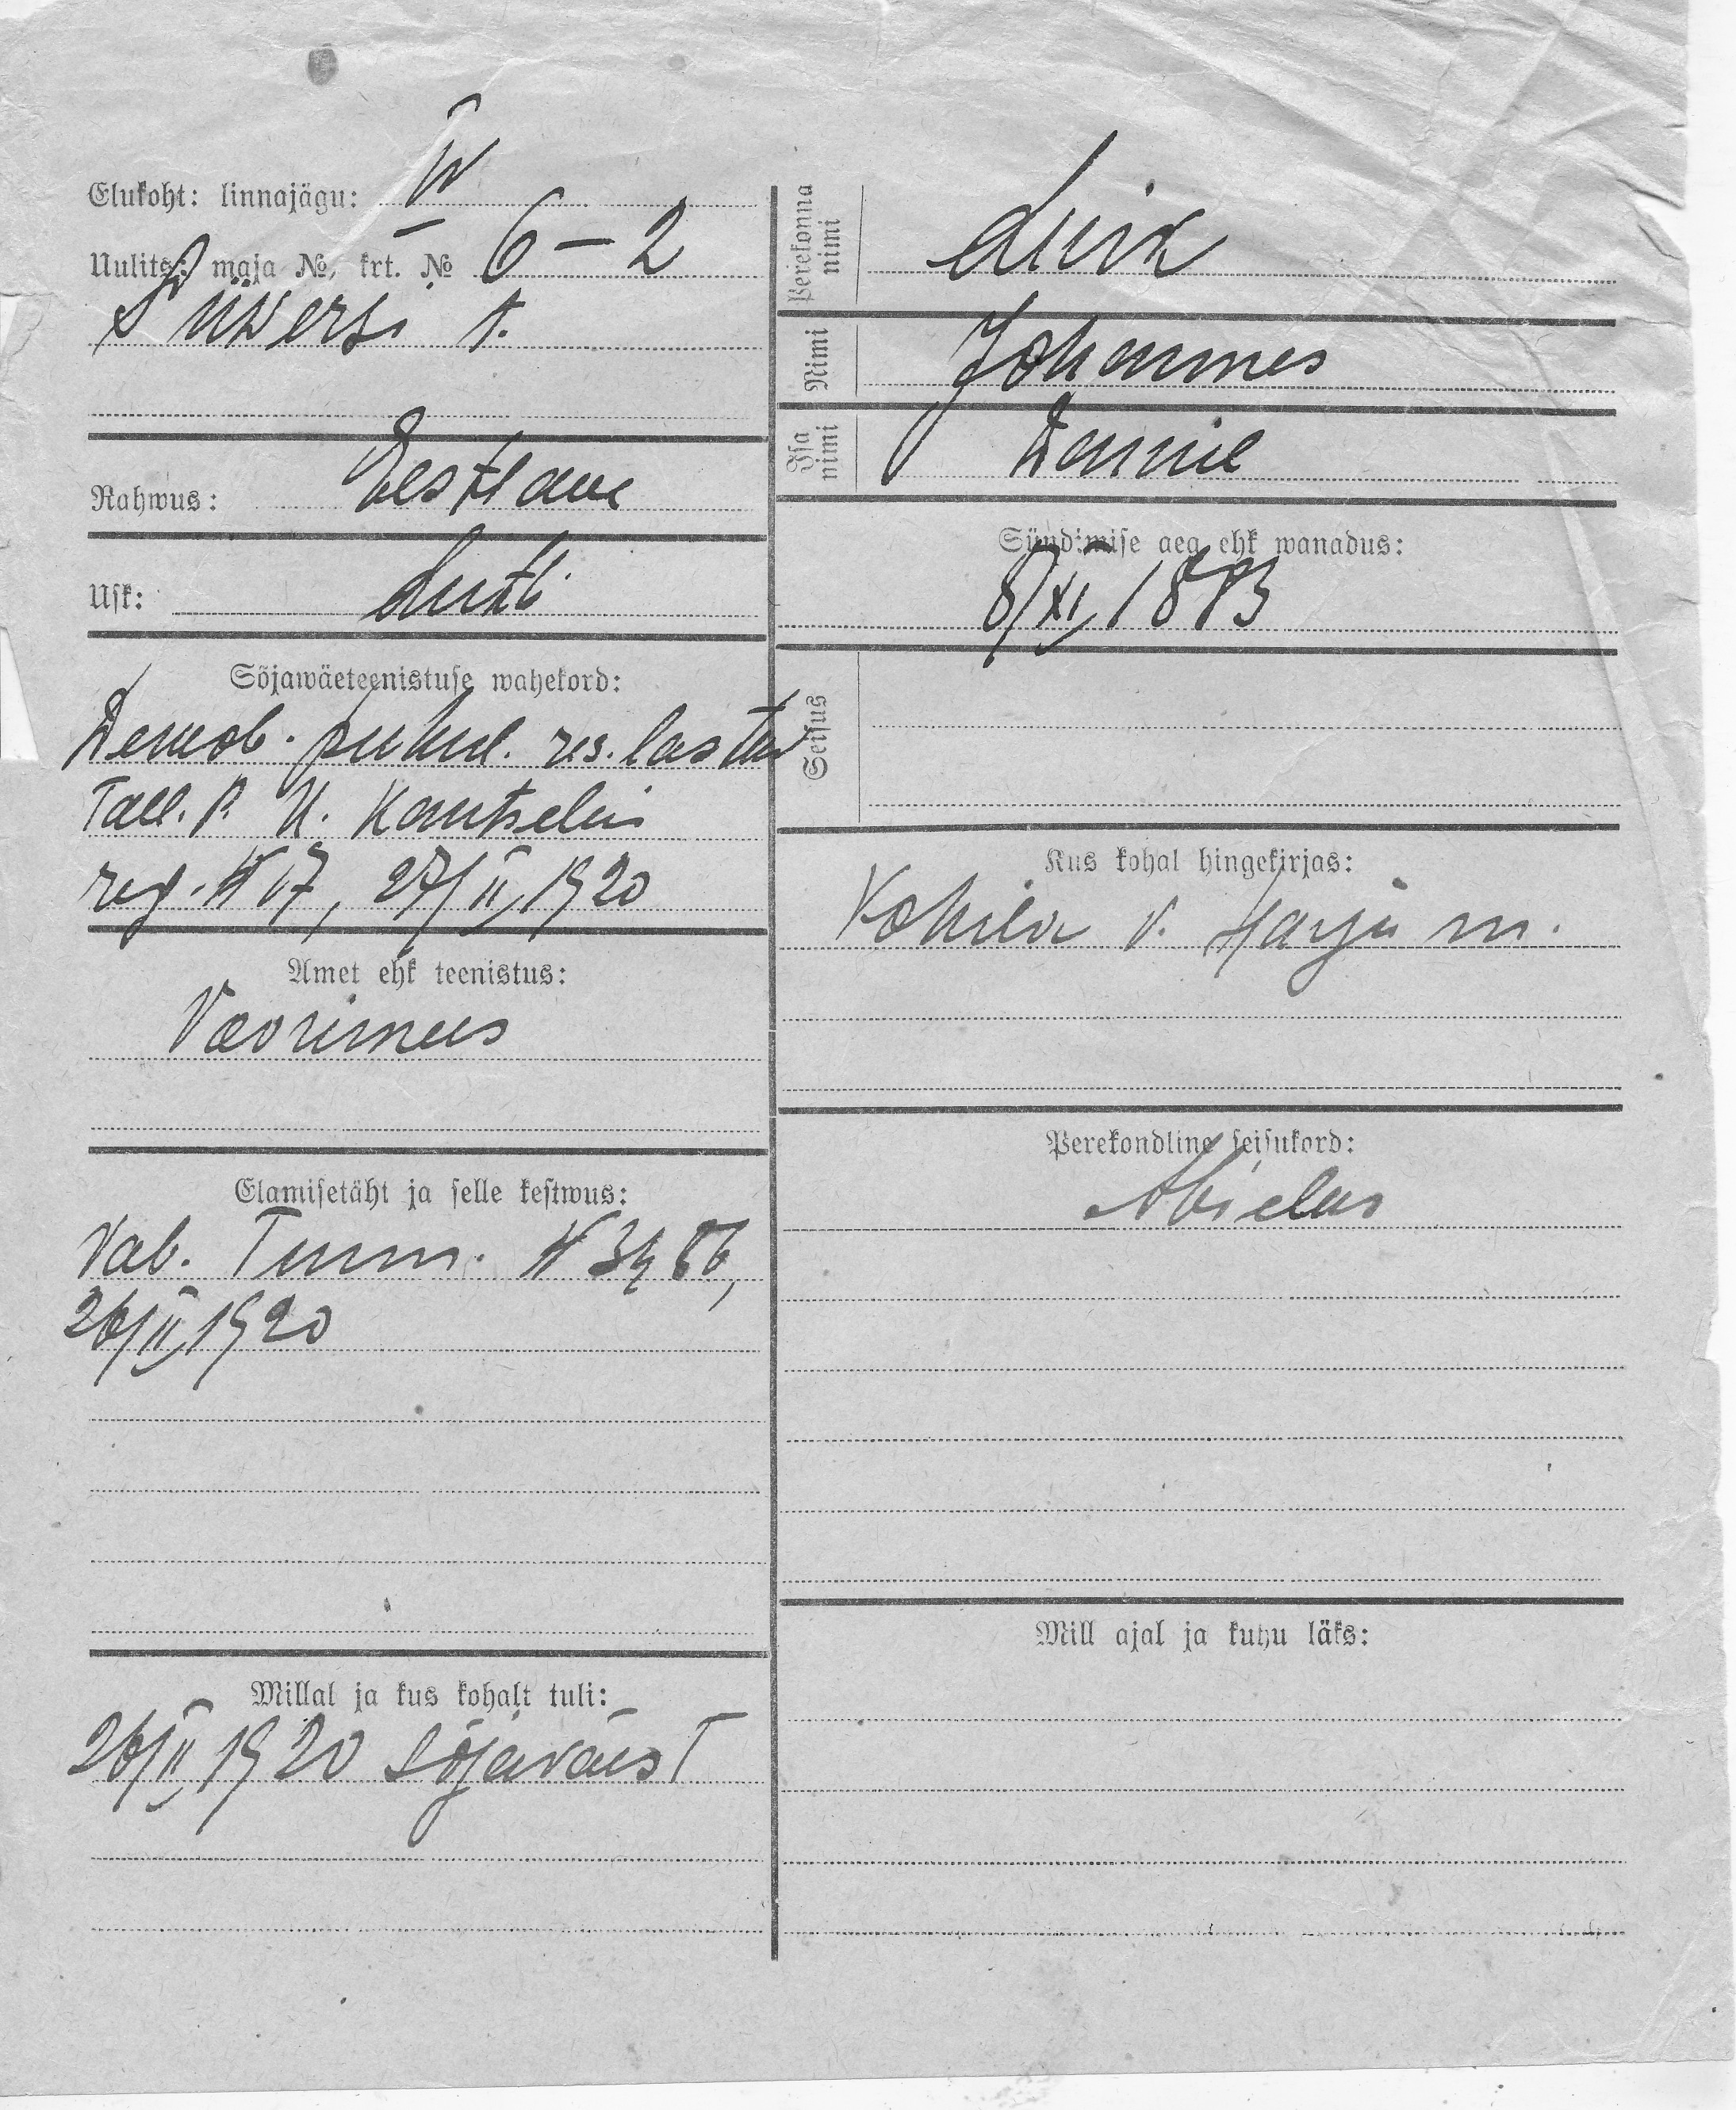 Elukoht: linnajägu: IV
Uulits, maja №, krt. № 6-2
Süwersi t.
Rahwus: Eestlane
Usk: Luth
Sõjawäeteenistuse wahekord:
Demob. puhul. res. lastud
Tall. P. Ü. Kantselei
reg. № 17, 27/II 1920
Amet ehk teenistus:
Voorimees
Elamisetäht ja selle kestwus:
Vab. Tunn. № 3486,
26/II 1920
Millal ja kus kohalt tuli:
26/II 1920 sõjaväest
Perekonna nimi Luik
Nimi Johannes
Isa nimi
Sündimise aeg ehk wanadus:
8/XI 1893
Seisus
Kus kohal hingekirjas:
Kohila v. Harju m.
Perekondline seisukord:
Abielus
Mill ajal ja kuhu läks: